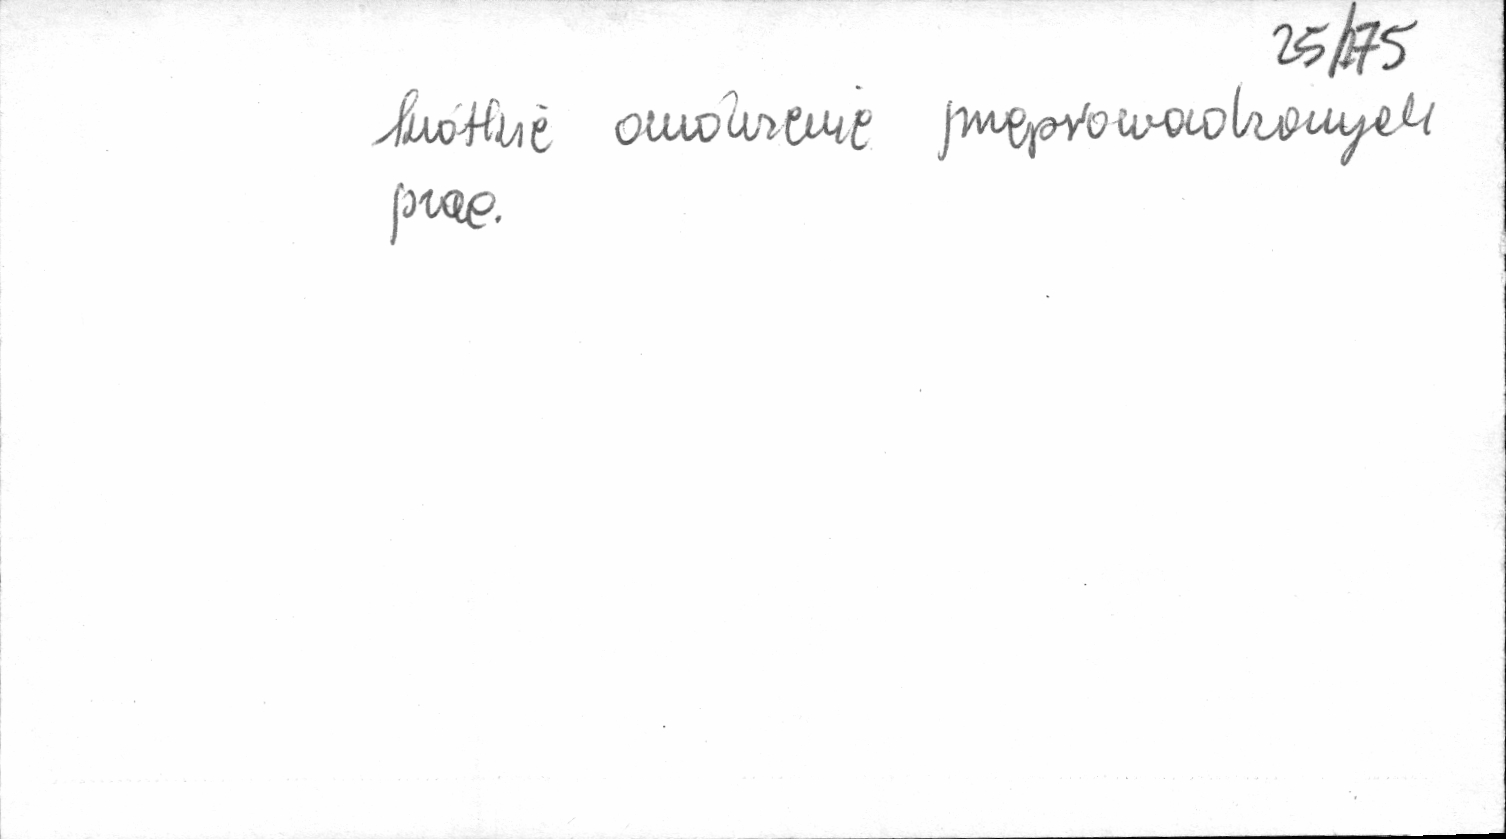 25/175
krótkie omówienie przeprowadzonych
prac.